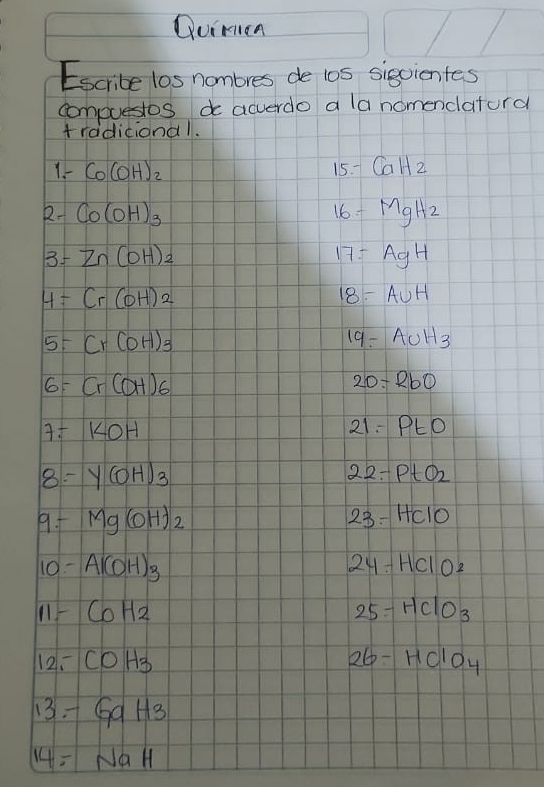 QUÍMICA
Escribe los nombres de los siguientes
compuestos de acuerdo a la nomenclatura
tradicional.
1.- Co(OH)2
2- Co(OH)3
3- Zn(OH)2
4- Cr(OH)2
5- Cr(OH)3
6- Cr(OH)6
7- KOH
8- Y(OH)3
9.- Mg(OH)2
10.- Al(OH)3
11.- CoH2
12.- COH3
13.- GaH3
14- NaH
15.- CaH2
16- MgH2
17- AgH
18- AUH
19.- AUH3
20- RbO
21.- PtO
22- PtO2
23- HClO
24- HClO2
25- HClO3
26- HClO4